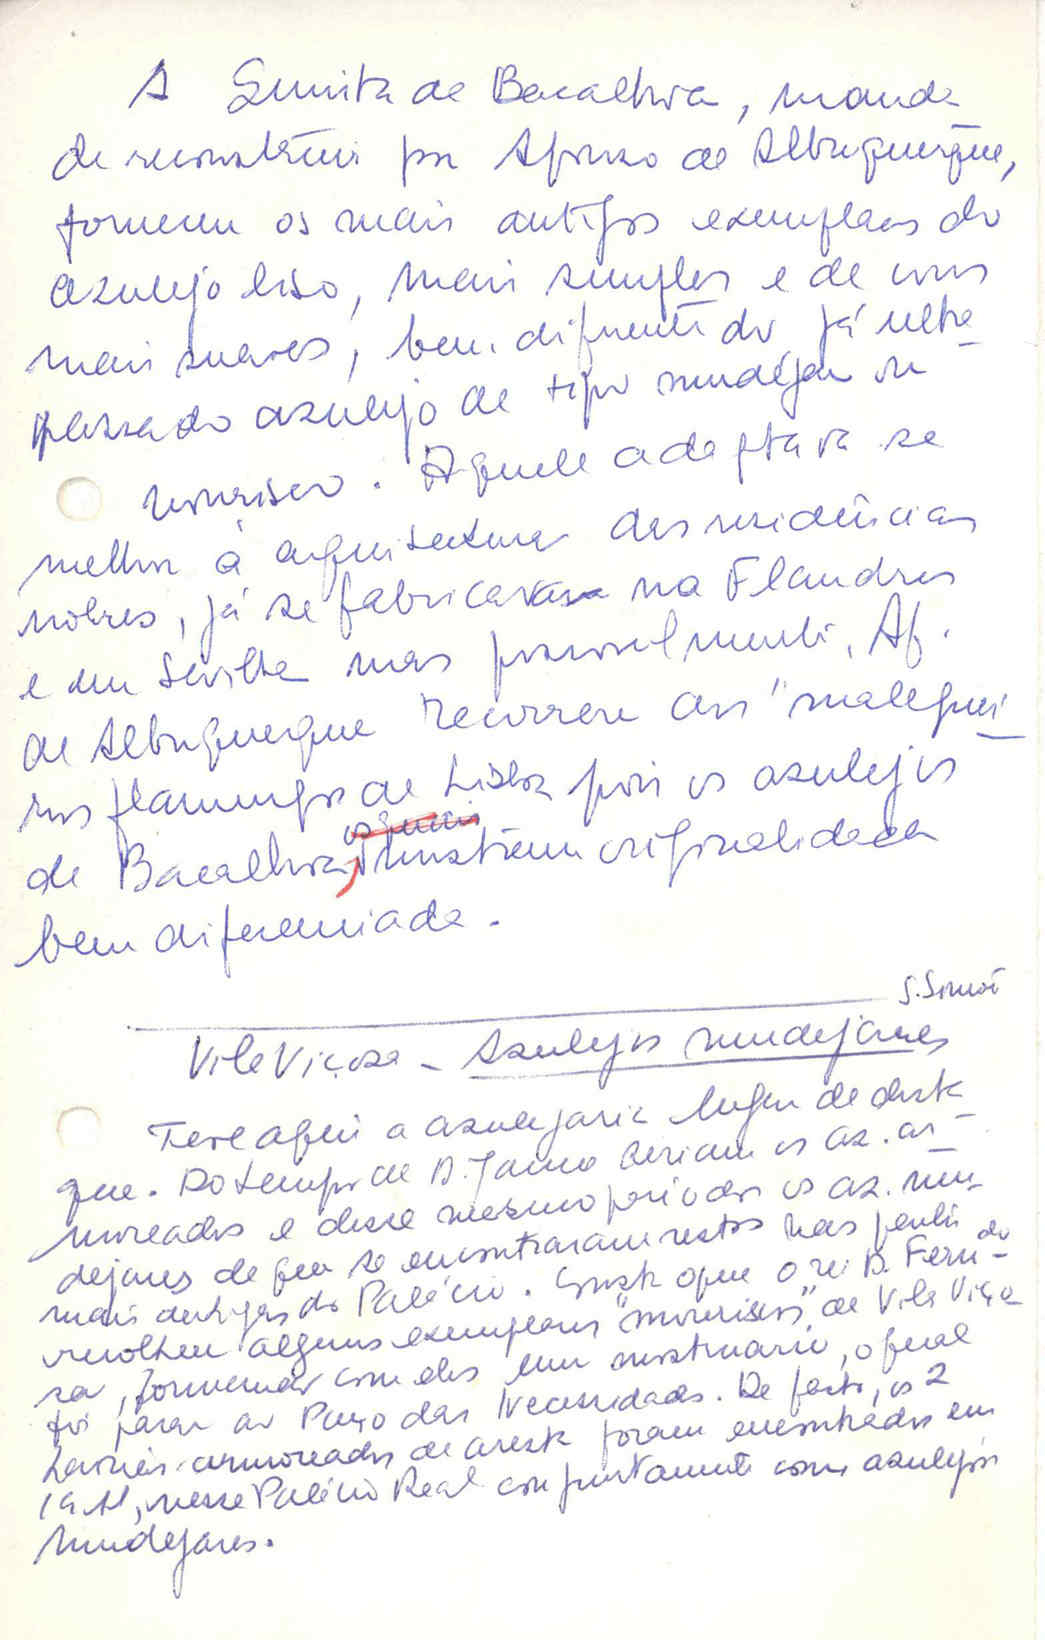 A Quinta de Bacalhoa, manda
da reconstruir por Afonso de Albuquerque,
fornecem os mais antigos exemplares do
azulejo liso, mais simples e de cores
mais suaves, bem diferente do já ultra-
passado azulejo de tipo mudéjar ou
mourisco. Aquele adaptava se
melhor à arquitectura das residências
nobres, já se fabricava na Flandres
e em Sevilha mas possivelmente, Af.
de Albuquerque recorrera aos "maleguei-
ros flamengos de Lisboa pois os azulejos
de Bacalhoa, mostram originalidade
bem diferenciada.
S. Simões
Vila Viçosa - Azulejos mudejares
Teve aqui a azulejaria lugar de desta-
que. Do tempo de D. Jaime seriam os az. ar-
moreados e desse mesmo período os az. mu-
dejares de que se encontraram restos nas partes
mais antigas do Palácio. Consta que o rei D. Fernando
recolheu alguns exemplares "mouriscos" de Vila Viço-
sa, formando com eles um mostruário, o qual
foi parar ao Paço das Necessidades. De facto, os 2
armoreados de aresta foram encontrados em
1911, nesse Palácio Real conjuntamente com azulejos
mudejares.